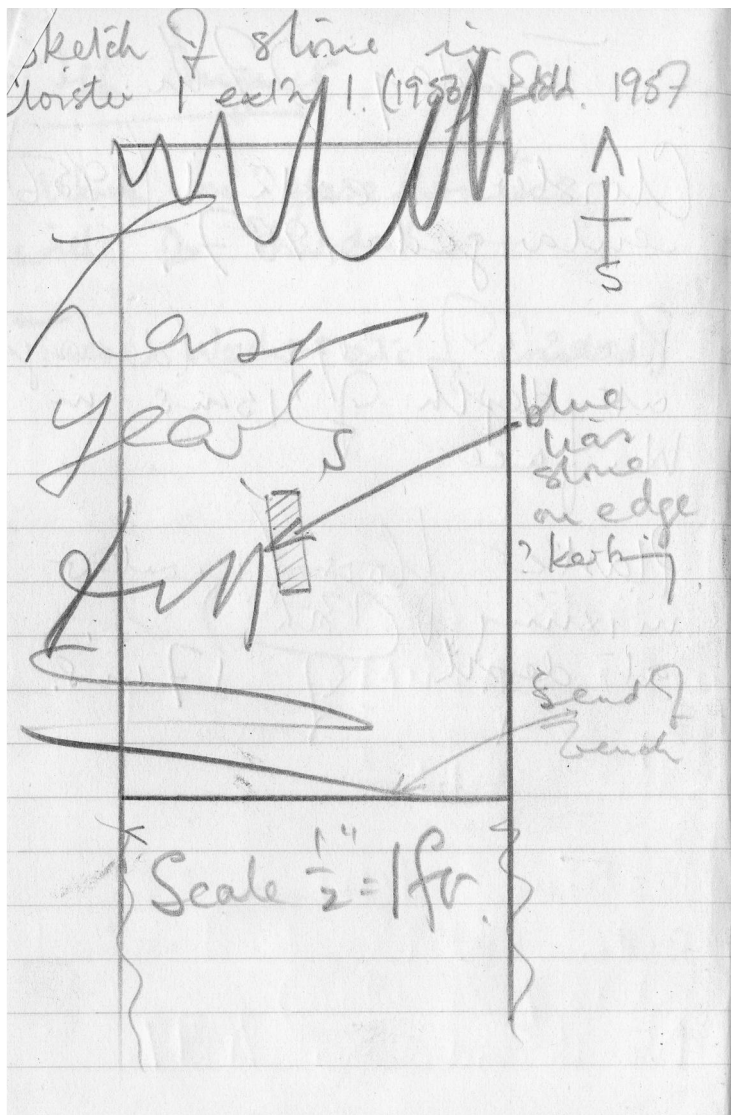 Sketch of stone in
Cloister 1 extn 1. (1956) Extd. 1957
S
Last
year's
blue
lias
stone
on edge
? kerbing.
S end of
trench
Scale 1/2" = 1 ft.